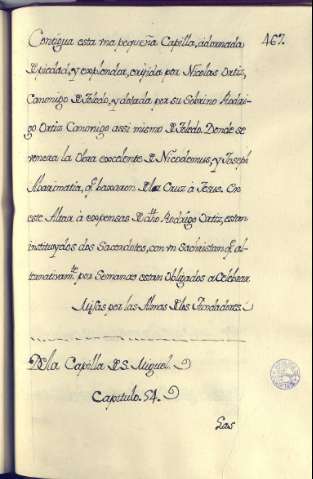 467.
Contigua esta vna pequeña Capilla, adornada
De piedad, y explendor, erijida por Nicolas Ortiz,
Canonigo De Toledo, y dotada por su Sobrino Rodri-
go Ortiz Canonigo assi mismo De Toledo. Donde se
venera la Obra excelente De Nicodemus, y Joseph
Abarimatia, q.e baxaron De la Cruz à Jesus. En
este Altar à expensas De dho Rodrigo Ortiz, estan
instituydos dos Sacerdotes, con vn Sachristan q.e al-
ternativam.te por Semanas estan Obligados a Celebrar
Misas por las Almas De los Fundadores.
De la Capilla De S. Miguel.
Capitulo. 54.
Las